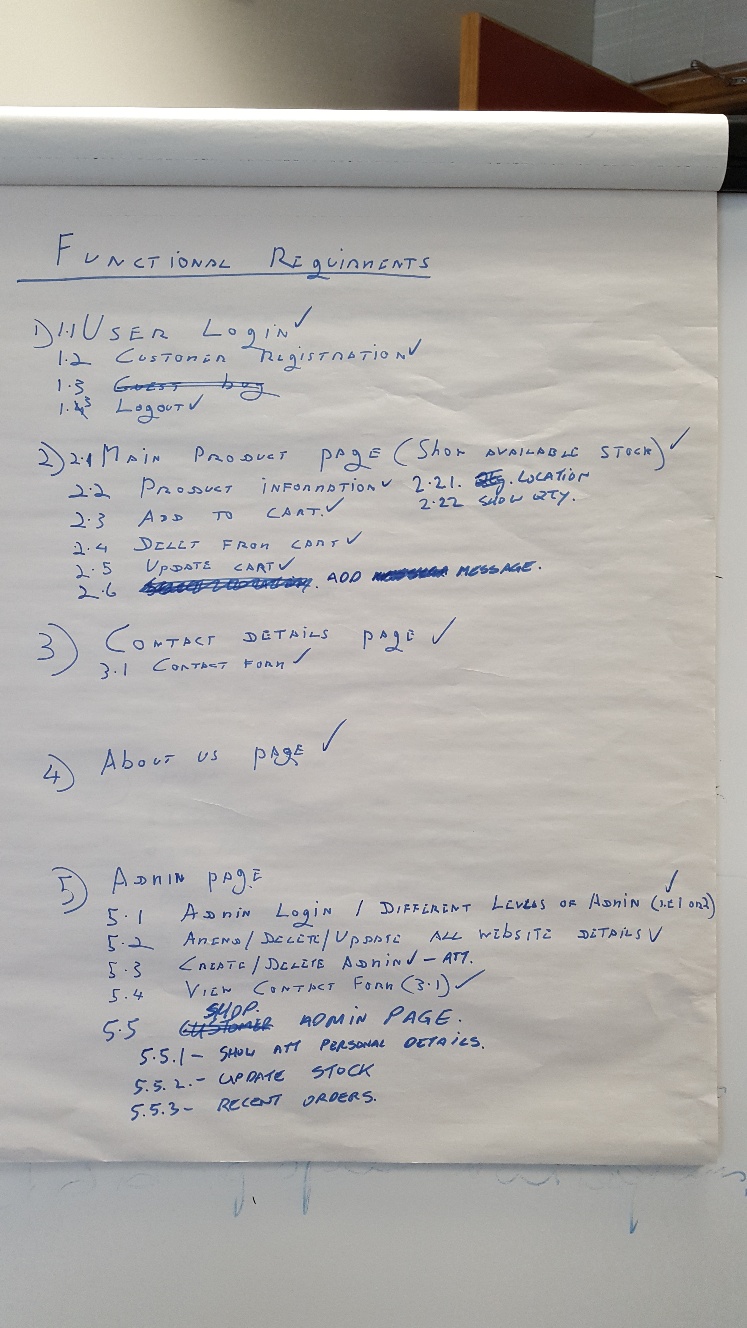 FUNCTIONAL REQUIRMENTS
1) 1.1 USER LOGIN ✓
1.2 CUSTOMER REGISTRATION ✓
1.3 GUEST buy
1.3 LOGOUT ✓
2) 2.1 MAIN PRODUCT PAGE (SHOW AVAILABLE STOCK) ✓
2.2 PRODUCT INFORMATION ✓ 2.21. LOCATION
2.22 SHOW QTY.
2.3 ADD TO CART. ✓
2.4 DELET FROM CART ✓
2.5 UPDATE CART ✓
2.6 ADD MESSAGE.
3) CONTACT DETAILS PAGE ✓
3.1 CONTACT FORM ✓
4) ABOUT US PAGE ✓
5) ADMIN PAGE
5.1 ADMIN LOGIN / DIFFERENT LEVELS OF ADMIN ✓
5.2 AMEND/DELETE/UPDATE ALL WEBSITE DETAILS ✓
5.3 CREATE/DELETE ADMIN ✓ - ATT.
5.4 VIEW CONTACT FORM (3.1) ✓
SHOP.
5.5 CUSTOMER ADMIN PAGE.
5.5.1- SHOW ATT PERSONAL DETAILS.
5.5.2.- UPDATE STOCK
5.5.3- RECENT ORDERS.